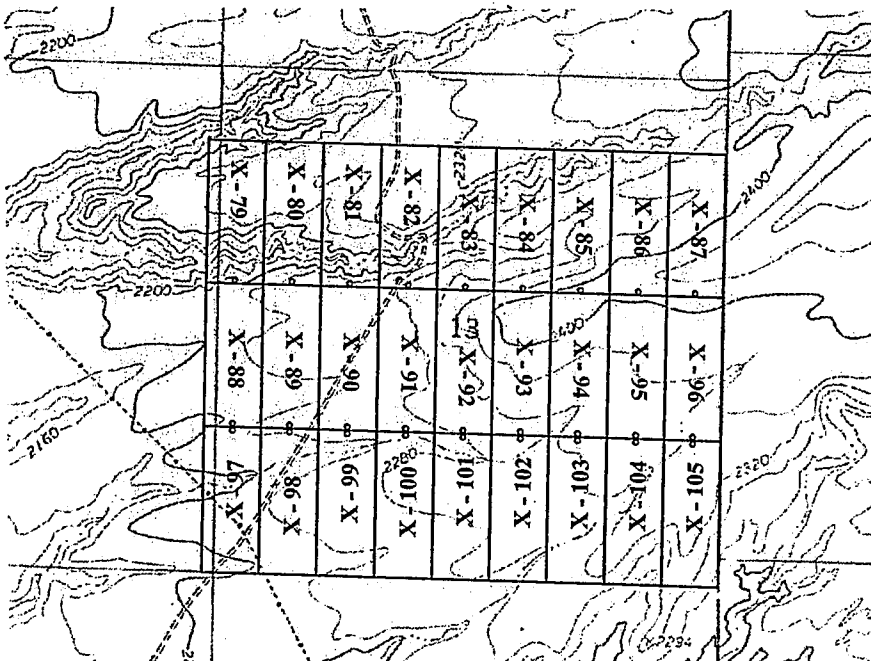 2200
2320
2400
X - 79
X - 80
X - 81
X - 82
X - 83
X - 84
X - 85
X - 86
X - 87
2200
2400
X - 88
X - 89
X - 90
X - 91
X - 92
X - 93
X - 94
X - 95
X - 96
2160
2280
2320
X - 97
X - 98
X - 99
X - 100
X - 101
X - 102
X - 103
X - 104
X - 105
X2294